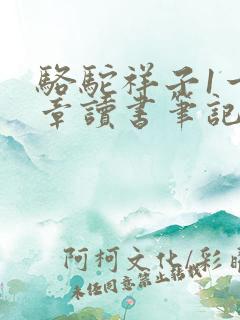 駱駝祥子1一
章讀書筆記
阿柯文化/彩
未经同意禁止转载